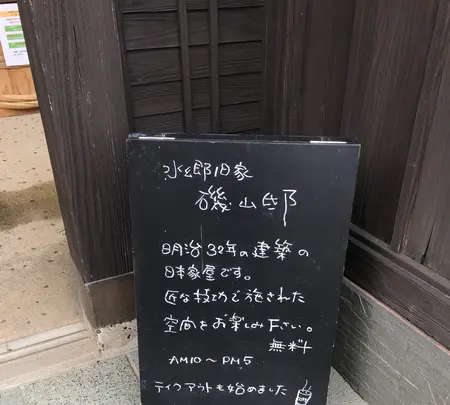 水郷旧家
磯山邸
明治32年の建築の
日本家屋です。
匠な技めで施された
空間をお楽しみ下さい。
無料
AM10～PM5
テイクアウトも始めました